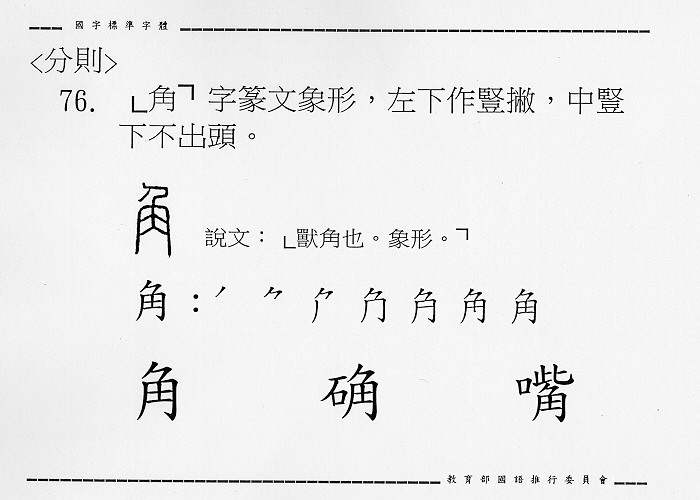 國字標準字體
<分則>
76. 「角」字篆文象形，左下作豎撇，中豎
下不出頭。
說文：「獸角也。象形。」
角：
角 确 嘴
教育部國語推行委員會